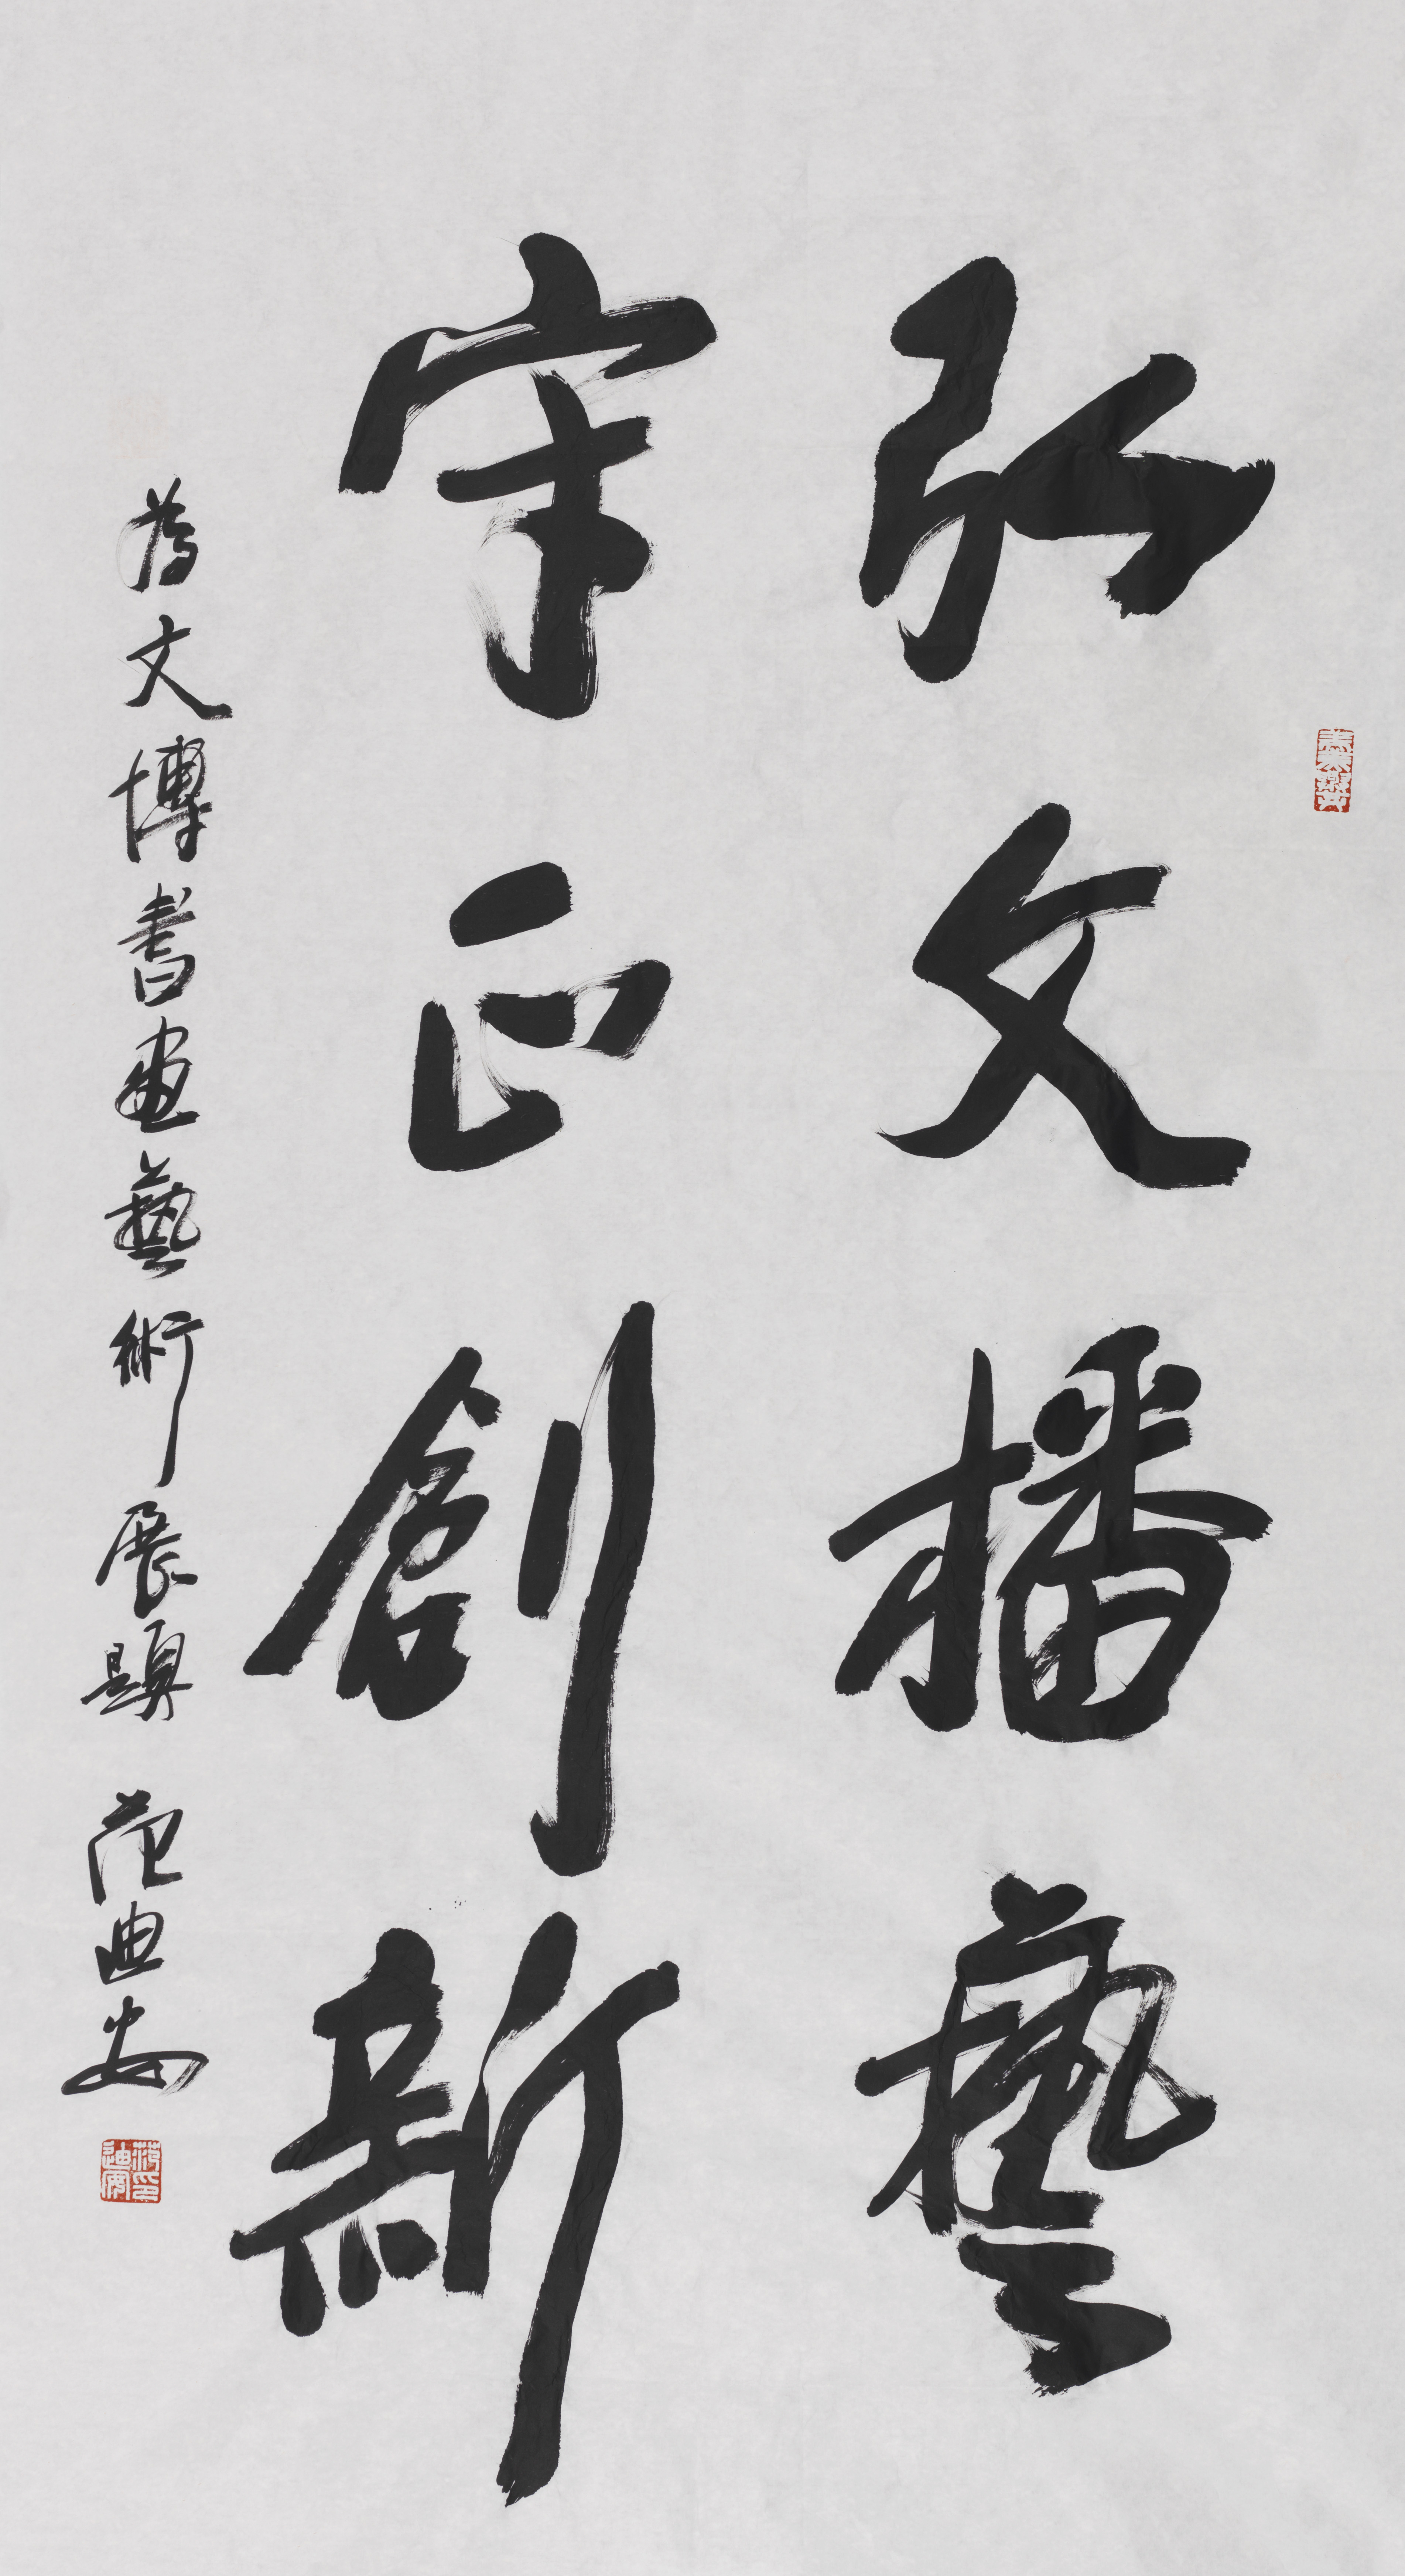 弘文播藝
守正創新
為文博書畫藝術展題 范迪安